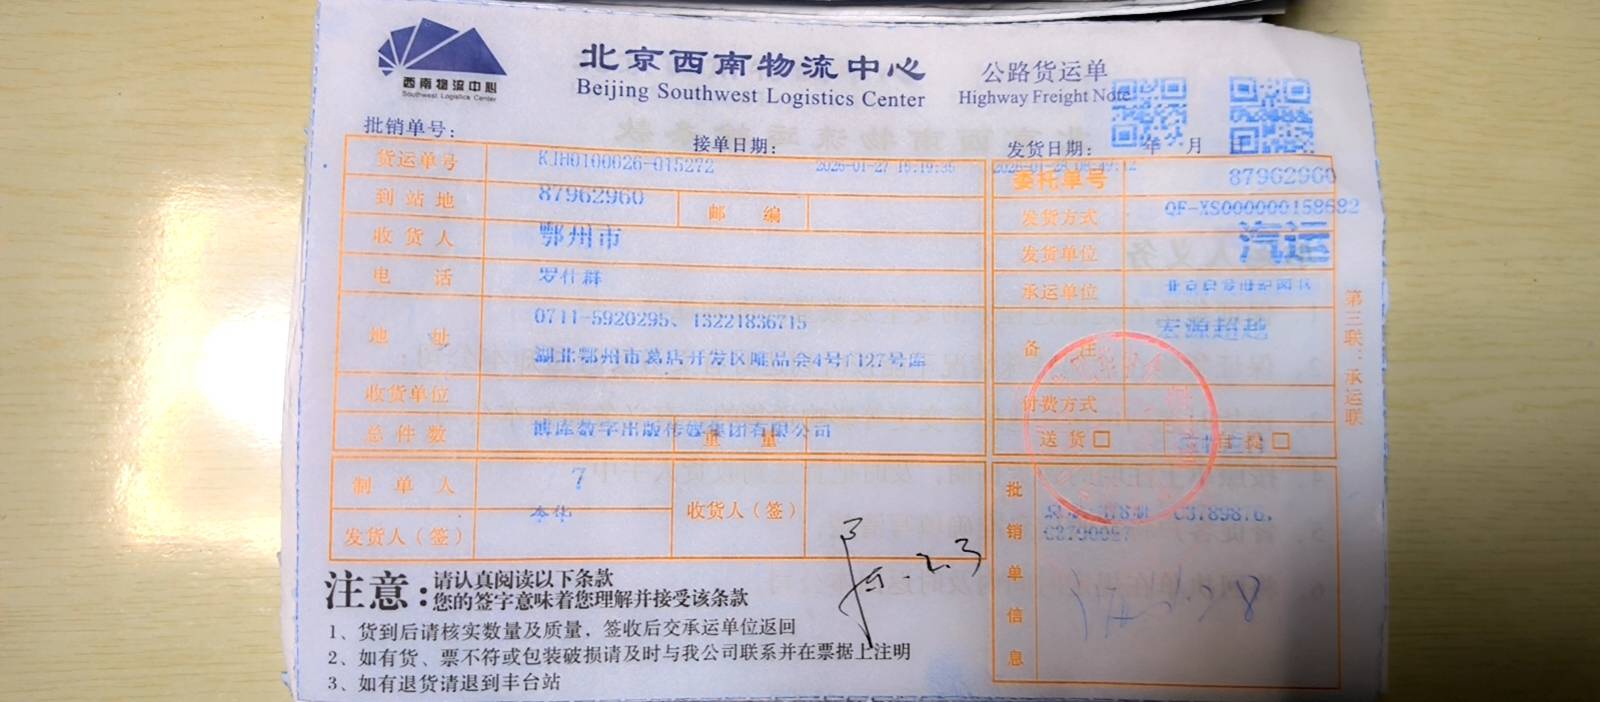 西南物流中心
Southwest Logistics Center
北京西南物流中心
Beijing Southwest Logistics Center
公路货运单
Highway Freight Note
批销单号：
接单日期：
发货日期： 年 月 日
货运单号 KJH0100026-015272 2026-01-27 16:19:36 2026-01-28 08:49:12
委托单号 87962960
到站地 87962960 邮编
发货方式 QF-XS000000158682
收货人 鄂州市
发货单位 汽运
电话 罗仕群
承运单位 北京启发世纪图书
地址 0711-5920295、13221836715
湖北鄂州市葛店开发区唯品会4号门27号库
备注 宏源超越
收货单位
付费方式
总件数 博库数字出版传媒集团有限公司 重量
送货□ 自提□
制单人 7
收货人（签）
发货人（签） 李华
批销单信息
第三联：承运联
2.3
注意：
请认真阅读以下条款
您的签字意味着您理解并接受该条款
1、货到后请核实数量及质量，签收后交承运单位返回
2、如有货、票不符或包装破损请及时与我公司联系并在票据上注明
3、如有退货请退到丰台站